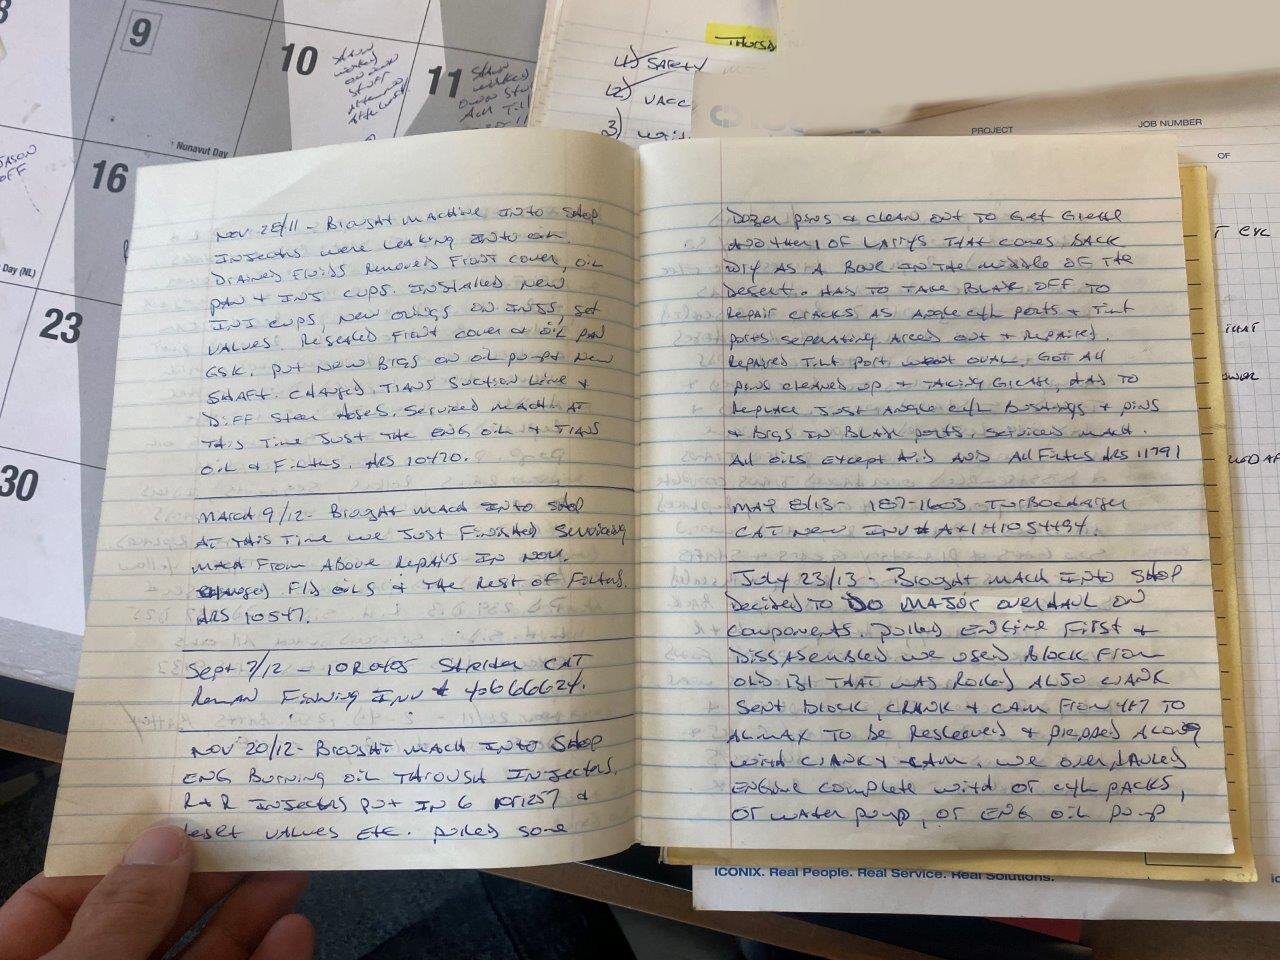 9
10
11
16
23
30
Nunavut Day
Day (NL)
JASON
OFF
SHAWN
WORKED
ON OWN
STUFF
SHAWN
WORKED
OWN
THURS
1) SAFETY
2) VACC
3)
PROJECT
JOB NUMBER
OF
NOV 28/11 - BROUGHT MACHINE INTO SHOP
INJECTORS WERE LEAKING INTO OIL.
DRAINED FLUIDS REMOVED FRONT COVER, OIL
PAN & INJ CUPS. INSTALLED NEW
INJ CUPS, NEW ORINGS ON INJS, SET
VALVES. RESEALED FRONT COVER & OIL PAN
GSK. PUT NEW BRGS ON OIL PUMP & NEW
SHAFT. CHANGED TRANS SUCTION LINE &
DIFF STEER HOSES. SERVICED MACH AT
THIS TIME JUST THE ENG OIL & TRANS
OIL & FILTERS. HRS 10470.
MARCH 9/12 - BROUGHT MACH INTO SHOP
AT THIS TIME WE JUST FINISHED SERVICING
MACH FROM ABOVE REPAIRS IN NOV.
CHANGED F/D OILS & THE REST OF FILTERS.
HRS 10547.
SEPT 7/12 - 10R0495 STARTER CAT
REMAN FINNING INV #
NOV 20/12 - BROUGHT MACH INTO SHOP
ENG BURNING OIL THROUGH INJECTORS.
R & R INJECTORS PUT IN 6 &
RESET VALVES ETC. PULLED SOME
DOZER PINS & CLEAN OUT TO GET GREASE
ANOTHER 1 OF LARRYS THAT COMES BACK
DRY AS A BONE IN THE MIDDLE OF THE
DESERT. HAS TO TAKE BLADE OFF TO
REPAIR CRACKS AS ANGLE CYL PORTS & TILT
PORTS SEPERATING ARCED OUT & REPAIRED.
REPAIRED TILT PORT WENT OVAL. GOT ALL
PINS CLEANED UP & TAKING GREASE, HAD TO
REPLACE JUST ANGLE CYL BUSHINGS & PINS
& BRGS IN BLADE PORTS. SERVICED MACH.
ALL OILS EXCEPT HYD AND ALL FILTERS HRS 11791
MAY 8/13 - 187-1603 - TURBOCHARGER
CAT NEW INV # AX141054494.
JULY 23/13 - BROUGHT MACH INTO SHOP
DECIDED TO DO MAJOR OVERHAUL ON
COMPONENTS. PULLED ENGINE FIRST &
DISSASEMBLED WE USED BLOCK FROM
OLD 131 THAT WAS ROLLED ALSO CRANK
SENT BLOCK, CRANK & CAM FROM 447 TO
ALIMAX TO BE RESLEEVED & PREPPED ALONG
WITH CRANK & CAM. WE OVERHAULED
ENGINE COMPLETE WITH OT CYL PACKS,
OT WATER PUMP, OT ENG OIL PUMP
ICONIX. Real People. Real Service. Real Solutions.